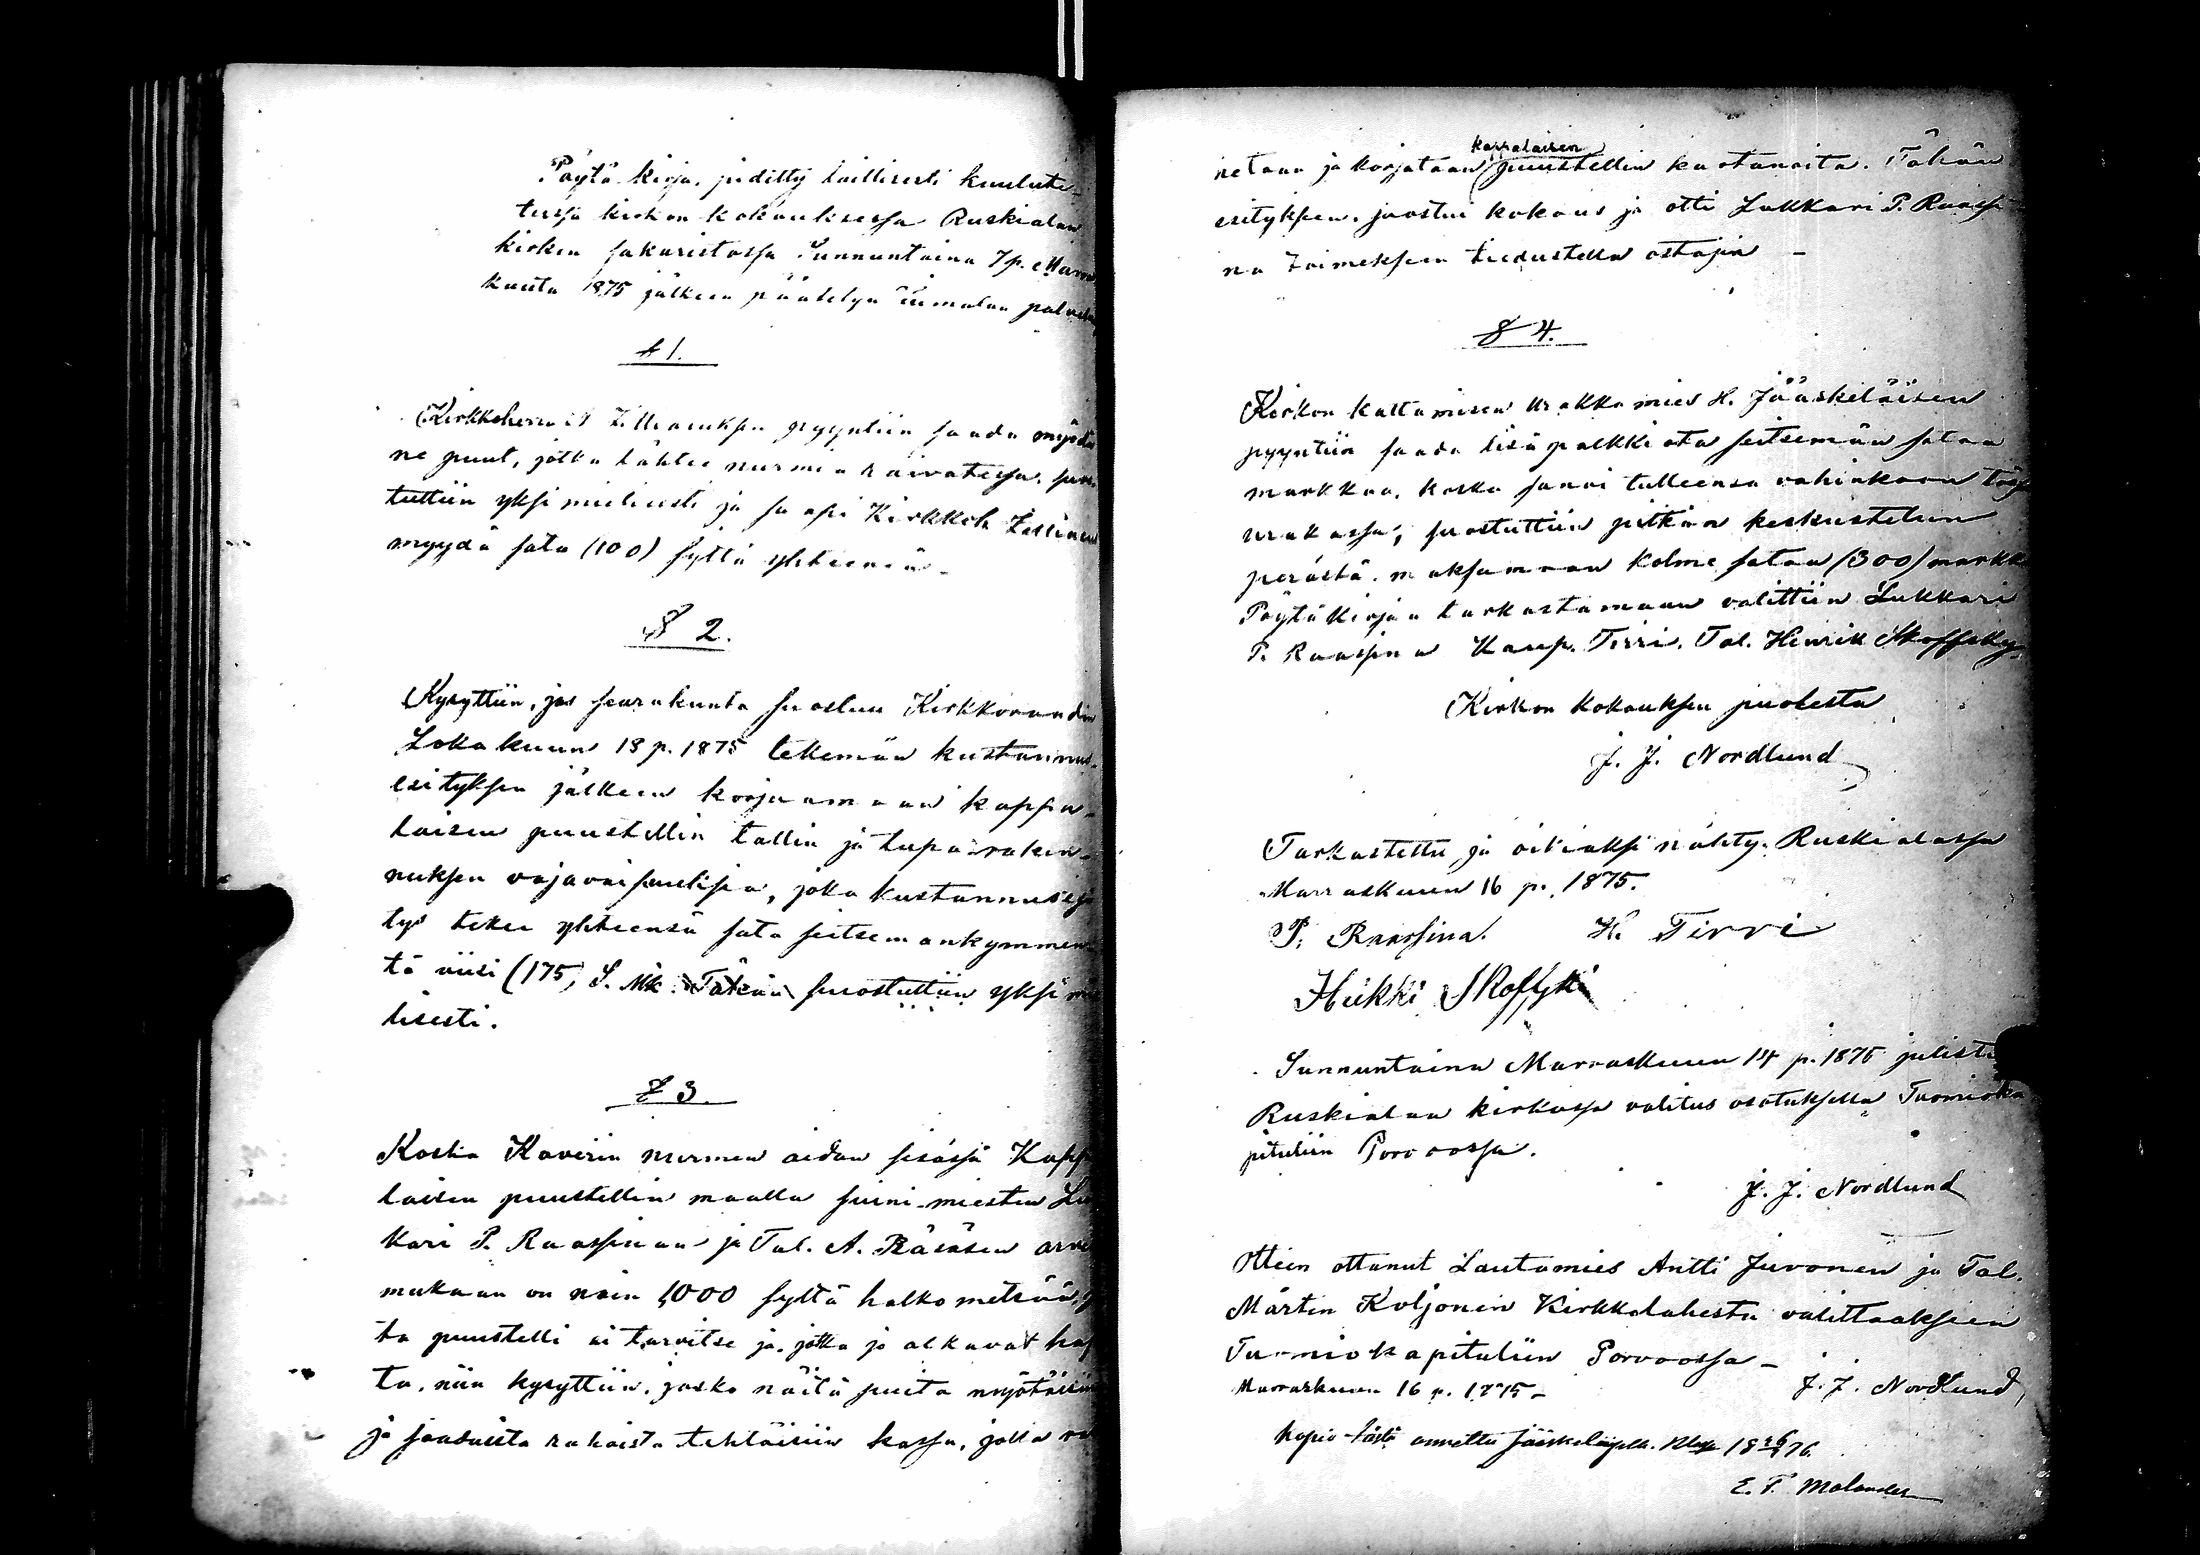 Pöytä-kirja, pidetty laillisesti kuulute-
tussa kirkon kokouksessa Ruskialan
kirkon sakaristossa Sunnuntaina 7 p. Marras
kuuta 1875 jälkeen päätetyn Jumalan palvelu
§ 1.
Kirkkoherra pyyntiin saada myödä
ne puut, jotka lähtee nurmia raivatessa, suos
tuttiin yksimielisesti ja saapi Kirkkoh
myydä sata (100) syltä yhteensä.
§ 2.
Kysyttiin, jos seurakunta suostuu Kirkkoraadin
Lokakuun 18 p. 1875 tekemän kustannus-
esityksen jälkeen korjaamaan kappa-
laisen puustellin tallin ja tuparaken-
nuksen vajavaisuuksia, joka kustannusesi
tys tekee yhteensä sata seitsemänkymmen
tä viisi (175) S. Mk. Tähän suostuttiin yksimie
lisesti.
§ 3.
Koska Kaverin nurmen aidan sisässä Kappa
laisen puustellin maalla syini-miesten Luk
kari P. Raassinan ja Tal. A. Räsäsen arvi
mukaan on noin 1000 syltä halkometsää, jo
ta puustelli ei tarvitse ja jotka jo alkavat
ta, niin kysyttiin, josko näitä puita myötäisiin
ja saaduista rahoista tehtäisiin kassa, jolla ra
netaan ja korjataan kappalaisen puustellin kartanoita. Tähän
esitykseen suostui kokous ja otti Lukkari P. Raassi
na toimekseen tiedustella ostajia –
§ 4.
Kirkon kattamisen urakkamies H. Jääskeläisen
pyyntiin saada lisäpalkkiota seitsemän sataa
markkaa, koska sanoi tulleensa vahinkoon tässä
urakassa, suostuttiin pitkän keskustelun
perästä maksamaan kolme sataa (300) markk
Pöytäkirjaa tarkastamaan valittiin Lukkari
P. Raassina Kaup. Tirri. Tal. Henrik Skoffsky.
Kirkon kokouksen puolesta
J. J. Nordlund
Tarkastettu ja oikiaksi nähty. Ruskialassa
Marraskuun 16 p. 1875.
P. Raassina. H. Tirri
Heikki Skoffski
Sunnuntaina Marraskuun 14 p. 1875 julisti
Ruskialan kirkossa valitus osotuksella Tuomioka
pituliin Porvoossa.
J. J. Nordlund
Otteen ottanut Lautamies Antti Juvonen ja Tal.
Mårten Koljonen Kirkkolahesta valittaakseen
Tuomiokapituliin Porvoossa –
Marraskuun 16 p. 1875 – J. J. Nordlund,
Kopio tästä annettu
E. T. Molander